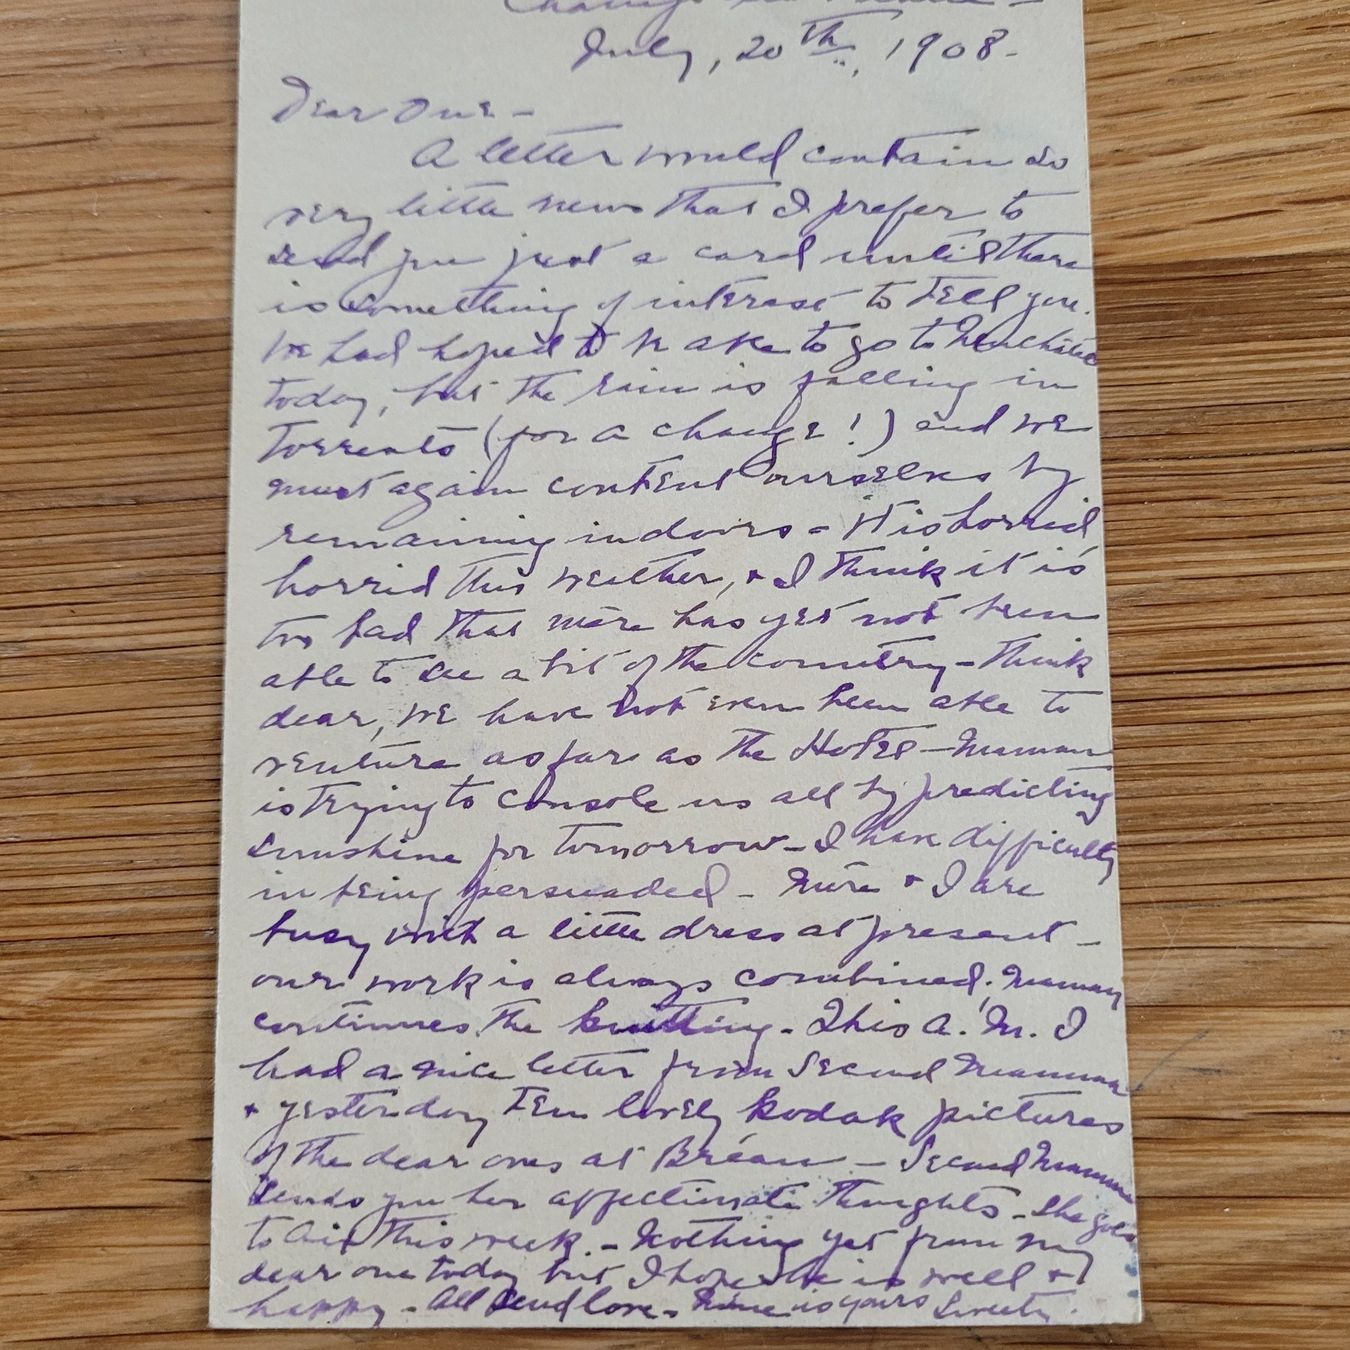 July, 20th, 1908-
Dear One-
A letter would contain so
very little news that I prefer to
send you just a card until there
is something of interest to tell you.
We had hoped to to go to
today, but the rain is falling in
torrents (for a change!) and we
must again content ourselves by
remaining indoors - It is horrid
horrid this weather, & I think it is
too bad that mère has yet not been
able to see a bit of the country - Think
dear, we have not even been able to
venture as far as the Hotel - Maman
is trying to console us all by predicting
sunshine for tomorrow - I have difficulty
in being persuaded - Mère & I are
busy with a little dress at present -
our work is always combined; Maman
continues the knitting - This A.M. I
had a nice letter from Second Maman
& yesterday ten lovely kodak pictures
of the dear ones at Bréau - Second Maman
sends you her affectionate thoughts - She goes
to Aix this week. - Nothing yet from my
dear one today but I hope he is well &
happy - All send love - Mine is yours Sweety.